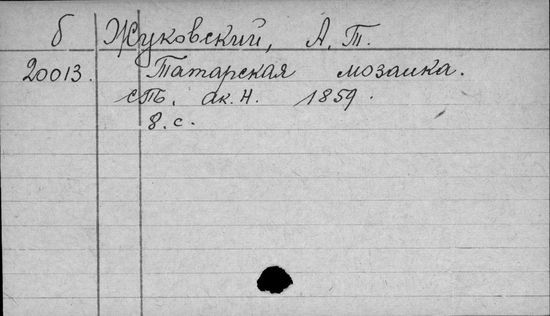 б Жуковский, А. Т.
20013. Татарская мозаика.
ст. ак. Н. 1859.
8. с.